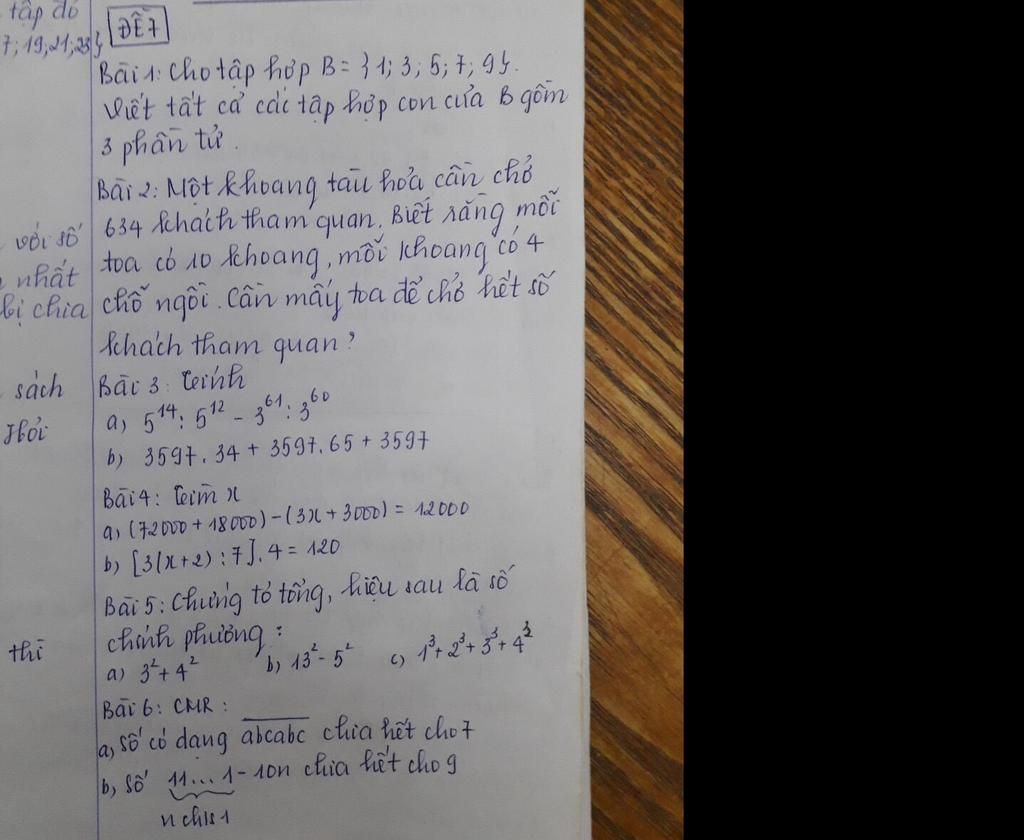 tập đó
7; 19; 21; 23}
với số
nhất
bị chia
sách
Hỏi
thì
ĐỀ 7
Bài 1: Cho tập hợp B = {1; 3; 5; 7; 9}.
Viết tất cả các tập hợp con của B gồm
3 phần tử.
Bài 2: Một khoang tàu hỏa cần chở
634 khách tham quan. Biết rằng mỗi
toa có 10 khoang, mỗi khoang có 4
chỗ ngồi. Cần mấy toa để chở hết số
khách tham quan?
Bài 3: Tính
a) 5¹⁴ : 5¹² - 3⁶¹ : 3⁶⁰
b) 3597. 34 + 3597. 65 + 3597
Bài 4: Tìm x
a) (72000 + 18000) - (3x + 3000) = 12000
b) [3(x+2) : 7]. 4 = 120
Bài 5: Chứng tỏ tổng, hiệu sau là số
chính phương:
a) 3² + 4² b) 13² - 5² c) 1³ + 2³ + 3³ + 4³
Bài 6: CMR:
a) Số có dạng a̅b̅c̅a̅b̅c̅ chia hết cho 7
b) Số 11...1 - 10n chia hết cho 9
n ch/s 1